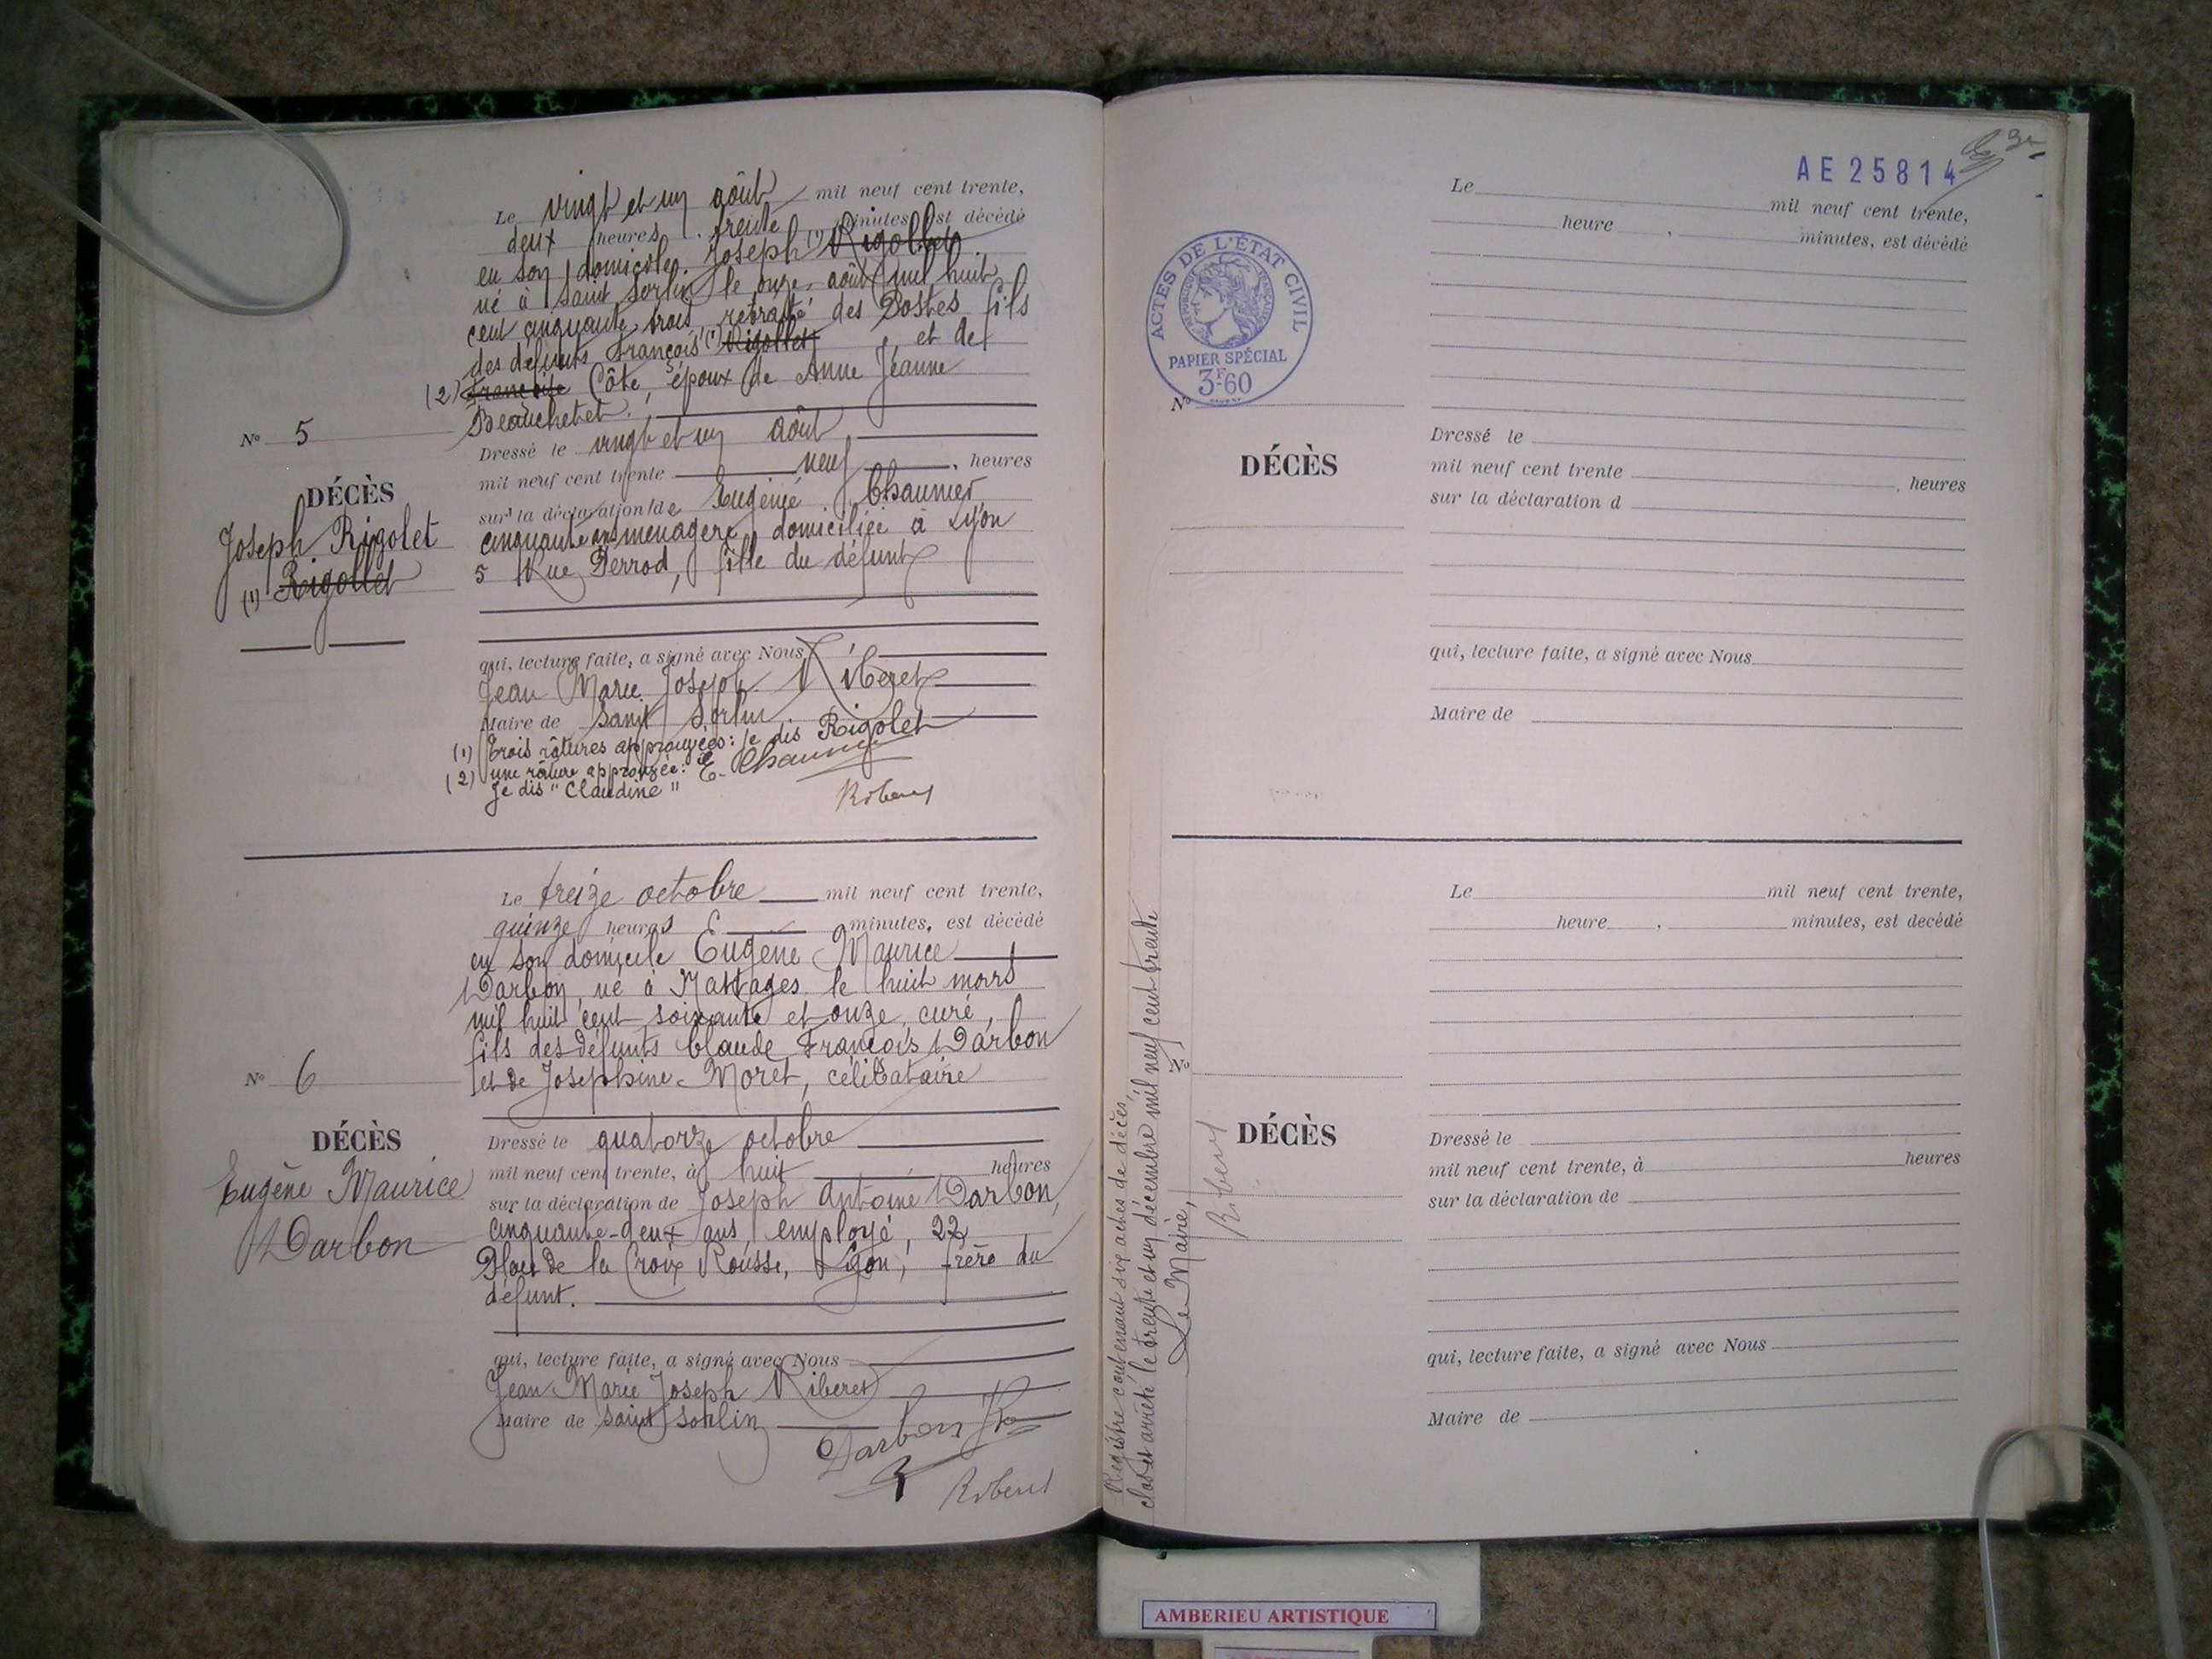 Le vingt et un août mil neuf cent trente,
deux heures trente minutes est décédé
en son domicile Joseph (1) Rigollet
né à Saint Sorlin le onze août mil huit
cent cinquante trois retraité des Postes fils
des défunts François (1) Rigollet, et de
(2) Françoise Côte, époux de Anne Jeanne
Beauchetet.
Nº 5
DÉCÈS
Joseph Rigolet
(1) Rigollet
Dressé le vingt et un août
mil neuf cent trente neuf, heures
sur la déclaration de Eugénie Chaumer
cinquante ans menagère, domiciliée à Lyon
5 Rue Perrod, fille du défunt
qui, lecture faite, a signé avec Nous
Jean Marie Joseph Riberet
Maire de Saint Sorlin
(1) Trois râtures approuvées: je dis Rigolet
(2) une râture approuvée: E. Chaumer
Je dis "Claudine"
Riberet
Le treize octobre mil neuf cent trente,
quinze heures E minutes, est décédé
en son domicile Eugène Maurice
Darbon, né à Martages le huit mars
mil huit cent soixante et onze, curé,
fils des défunts Claude François Darbon
et de Josephine Moret, célibataire
Nº 6
DÉCÈS
Eugène Maurice
Darbon
Dressé le quatorze octobre
mil neuf cent trente, à huit heures
sur la déclaration de Joseph Antoine Darbon,
cinquante-deux ans, employé, 22
Place de la Croix Rousse, Lyon, frère du
défunt.
qui, lecture faite, a signé avec Nous
Jean Marie Joseph Riberet
Maire de Saint Sorlin
Darbon
Riberet
Registre contenant six actes de décès,
clos et arrêté le trente et un décembre mil neuf cent trente
Le Maire,
Riberet
AE 25814
ACTES DE L'ÉTAT CIVIL
RÉPUBLIQUE FRANÇAISE
PAPIER SPÉCIAL
3F60
Le mil neuf cent trente,
heure , minutes, est décédé
Nº
DÉCÈS
Dressé le
mil neuf cent trente , heures
sur la déclaration d
qui, lecture faite, a signé avec Nous
Maire de
Le mil neuf cent trente,
heure , minutes, est decédé
Nº
DÉCÈS
Dressé le
mil neuf cent trente, à heures
sur la déclaration de
qui, lecture faite, a signé avec Nous
Maire de
AMBERIEU ARTISTIQUE